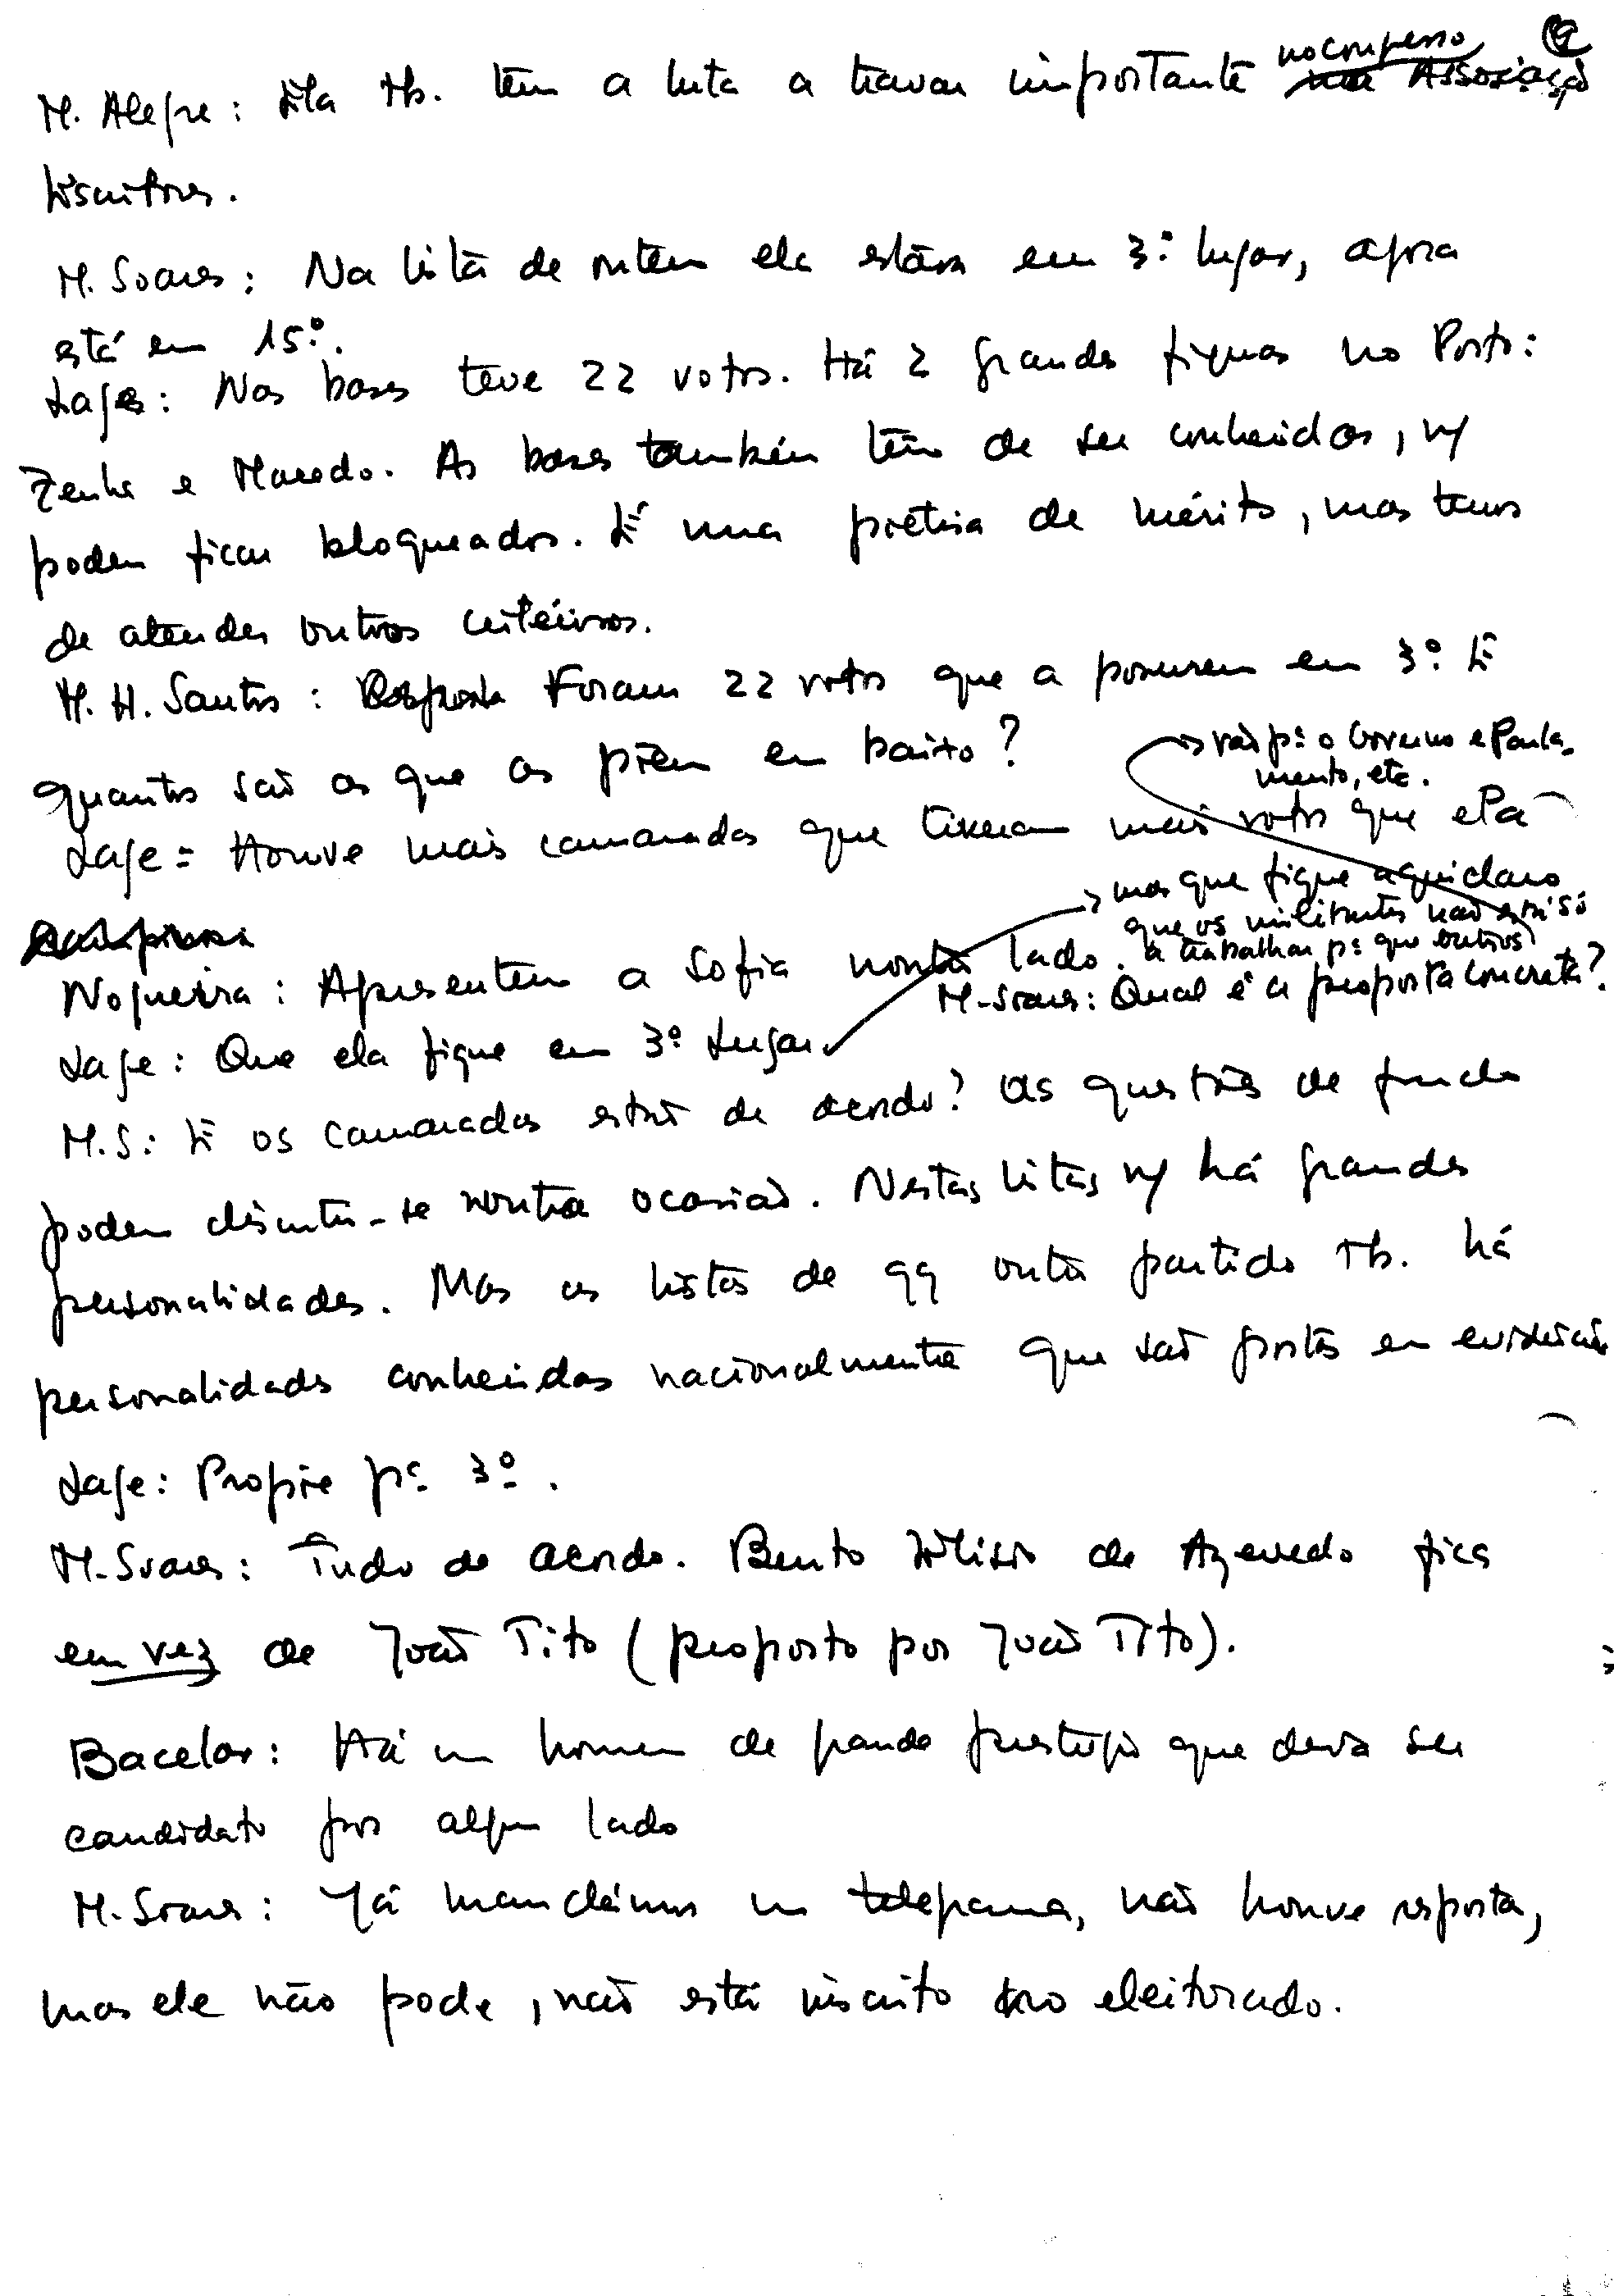 9
M. Alegre: Ela tb. tem a luta a travar importante no congresso na Associação
Escritores.
M. Soares: Na lista de ontem ela estava em 3º lugar, agora
está em 15º.
Lage: Nas bases teve 22 votos. Há 2 grandes figuras no Porto:
Zenha e Macedo. As bases também têm de ser conhecidas, ñ
podem ficar bloqueados. É uma poetisa de mérito, mas temos
de atender outros critérios.
M. H. Santos: Resposta Foram 22 votos que a puseram em 3º. E
quantos são os que os põem em baixo?
Lage = Houve mais camaradas que tiveram mais votos que ela
Nogueira: Apresentem a Sofia noutro lado.
M. Soares: Qual é a proposta concreta?
Lage: Que ela fique em 3º lugar
mas que fique aqui claro
que os militantes não estão só
a trabalhar pª que outros
vão pª o Governo e Parla-
mento, etc.
M.S: E os camaradas estão de acordo? As questões de fundo
podem discutir-se noutra ocasião. Nestas listas ñ há grandes
personalidades. Mas as listas de qq outro partido tb. há
personalidades conhecidas nacionalmente que são postas em evidência
Lage: Propõe pª 3º.
M. Soares: Tudo de acordo. Bento Elísio de Azevedo fica
em vez de João Tito (proposto por João Tito).
Bacelar: Há um homem de grande prestígio que devia ser
candidato por algum lado
M. Soares: Já mandámos um telegrama, não houve resposta,
mas ele não pode, não está inscrito no eleitorado.